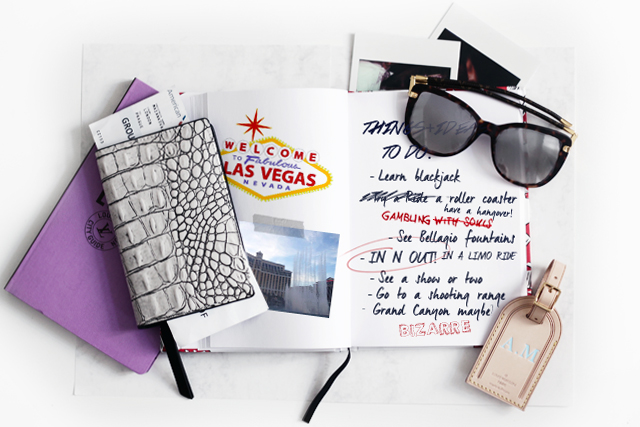 WELCOME
TO Fabulous
LAS VEGAS
NEVADA
THINGS
TO DO:
- Learn blackjack
Ride a roller coaster
have a hangover!
GAMBLING WITH SOULS
- See Bellagio fountains
- IN N OUT! IN A LIMO RIDE
- See a show or two
- Go to a shooting range
- Grand Canyon maybe?
BIZARRE
A.M
GROU
LONDON
GUIDE